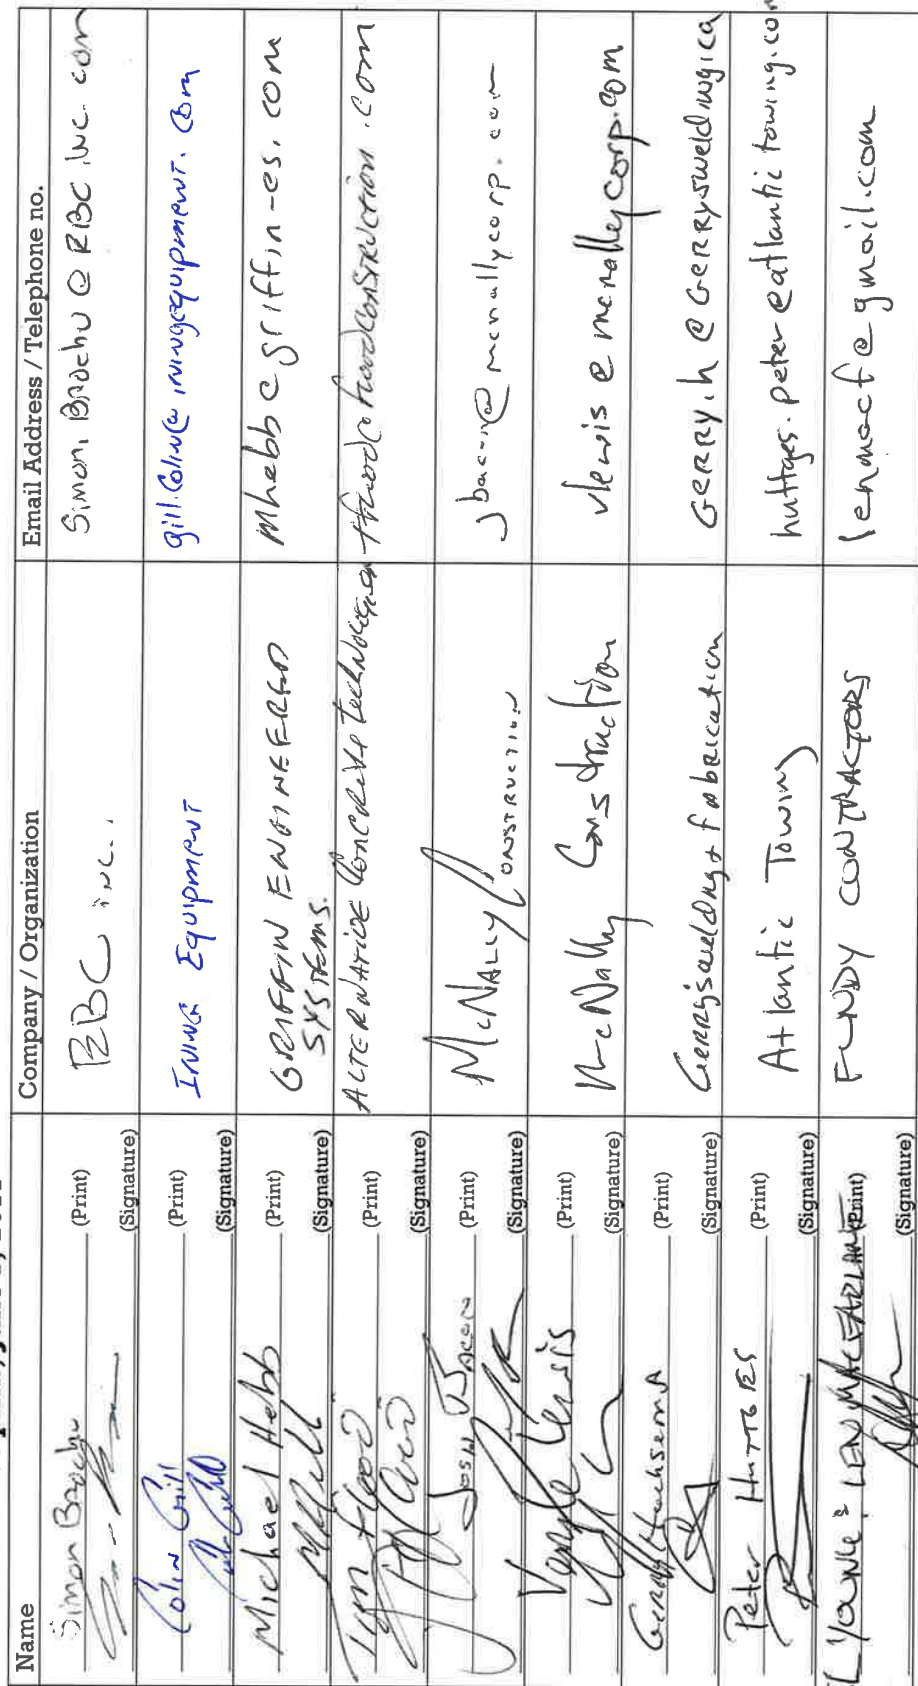 Name
Company / Organization
Email Address / Telephone no.
Simon Brochu (Print)
(Signature)
RBC inc.
Simon.Brochu@RBCinc.com
Colin Gill (Print)
(Signature)
Irving Equipment
gill.colin@irvingequipment.com
Michael Hebb (Print)
(Signature)
GRIFFIN ENGINEERED
SYSTEMS.
mhebb@griffin-es.com
Tim Flood (Print)
(Signature)
ALTERNATIVE CONCRETE technologies
tflood@floodconstruction.com
Josh Bacon (Print)
(Signature)
McNALLY CONSTRUCTION
jbacon@mcnallycorp.com
Lewis (Print)
(Signature)
McNally Construction
vlewis@mcnallycorp.com
Gerry (Print)
(Signature)
Gerry's welding + fabrication
GERRY.h@GERRYSwelding.ca
Peter HUTTGES (Print)
(Signature)
Atlantic Towing
huttges.peter@atlantictowing.com
LEN MACFARLANE (Print)
(Signature)
FUNDY CONTRACTORS
lenmacf@gmail.com